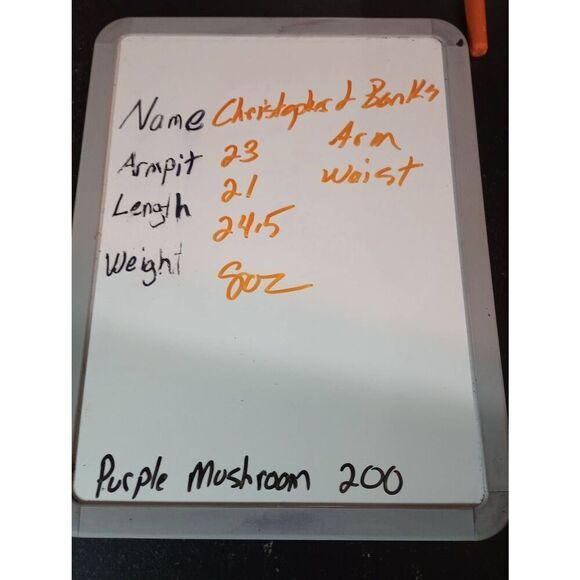 Name Christopher & Banks
Armpit 23 Arm
Length 21 Waist
24.5
Weight 8oz
Purple Mushroom 200